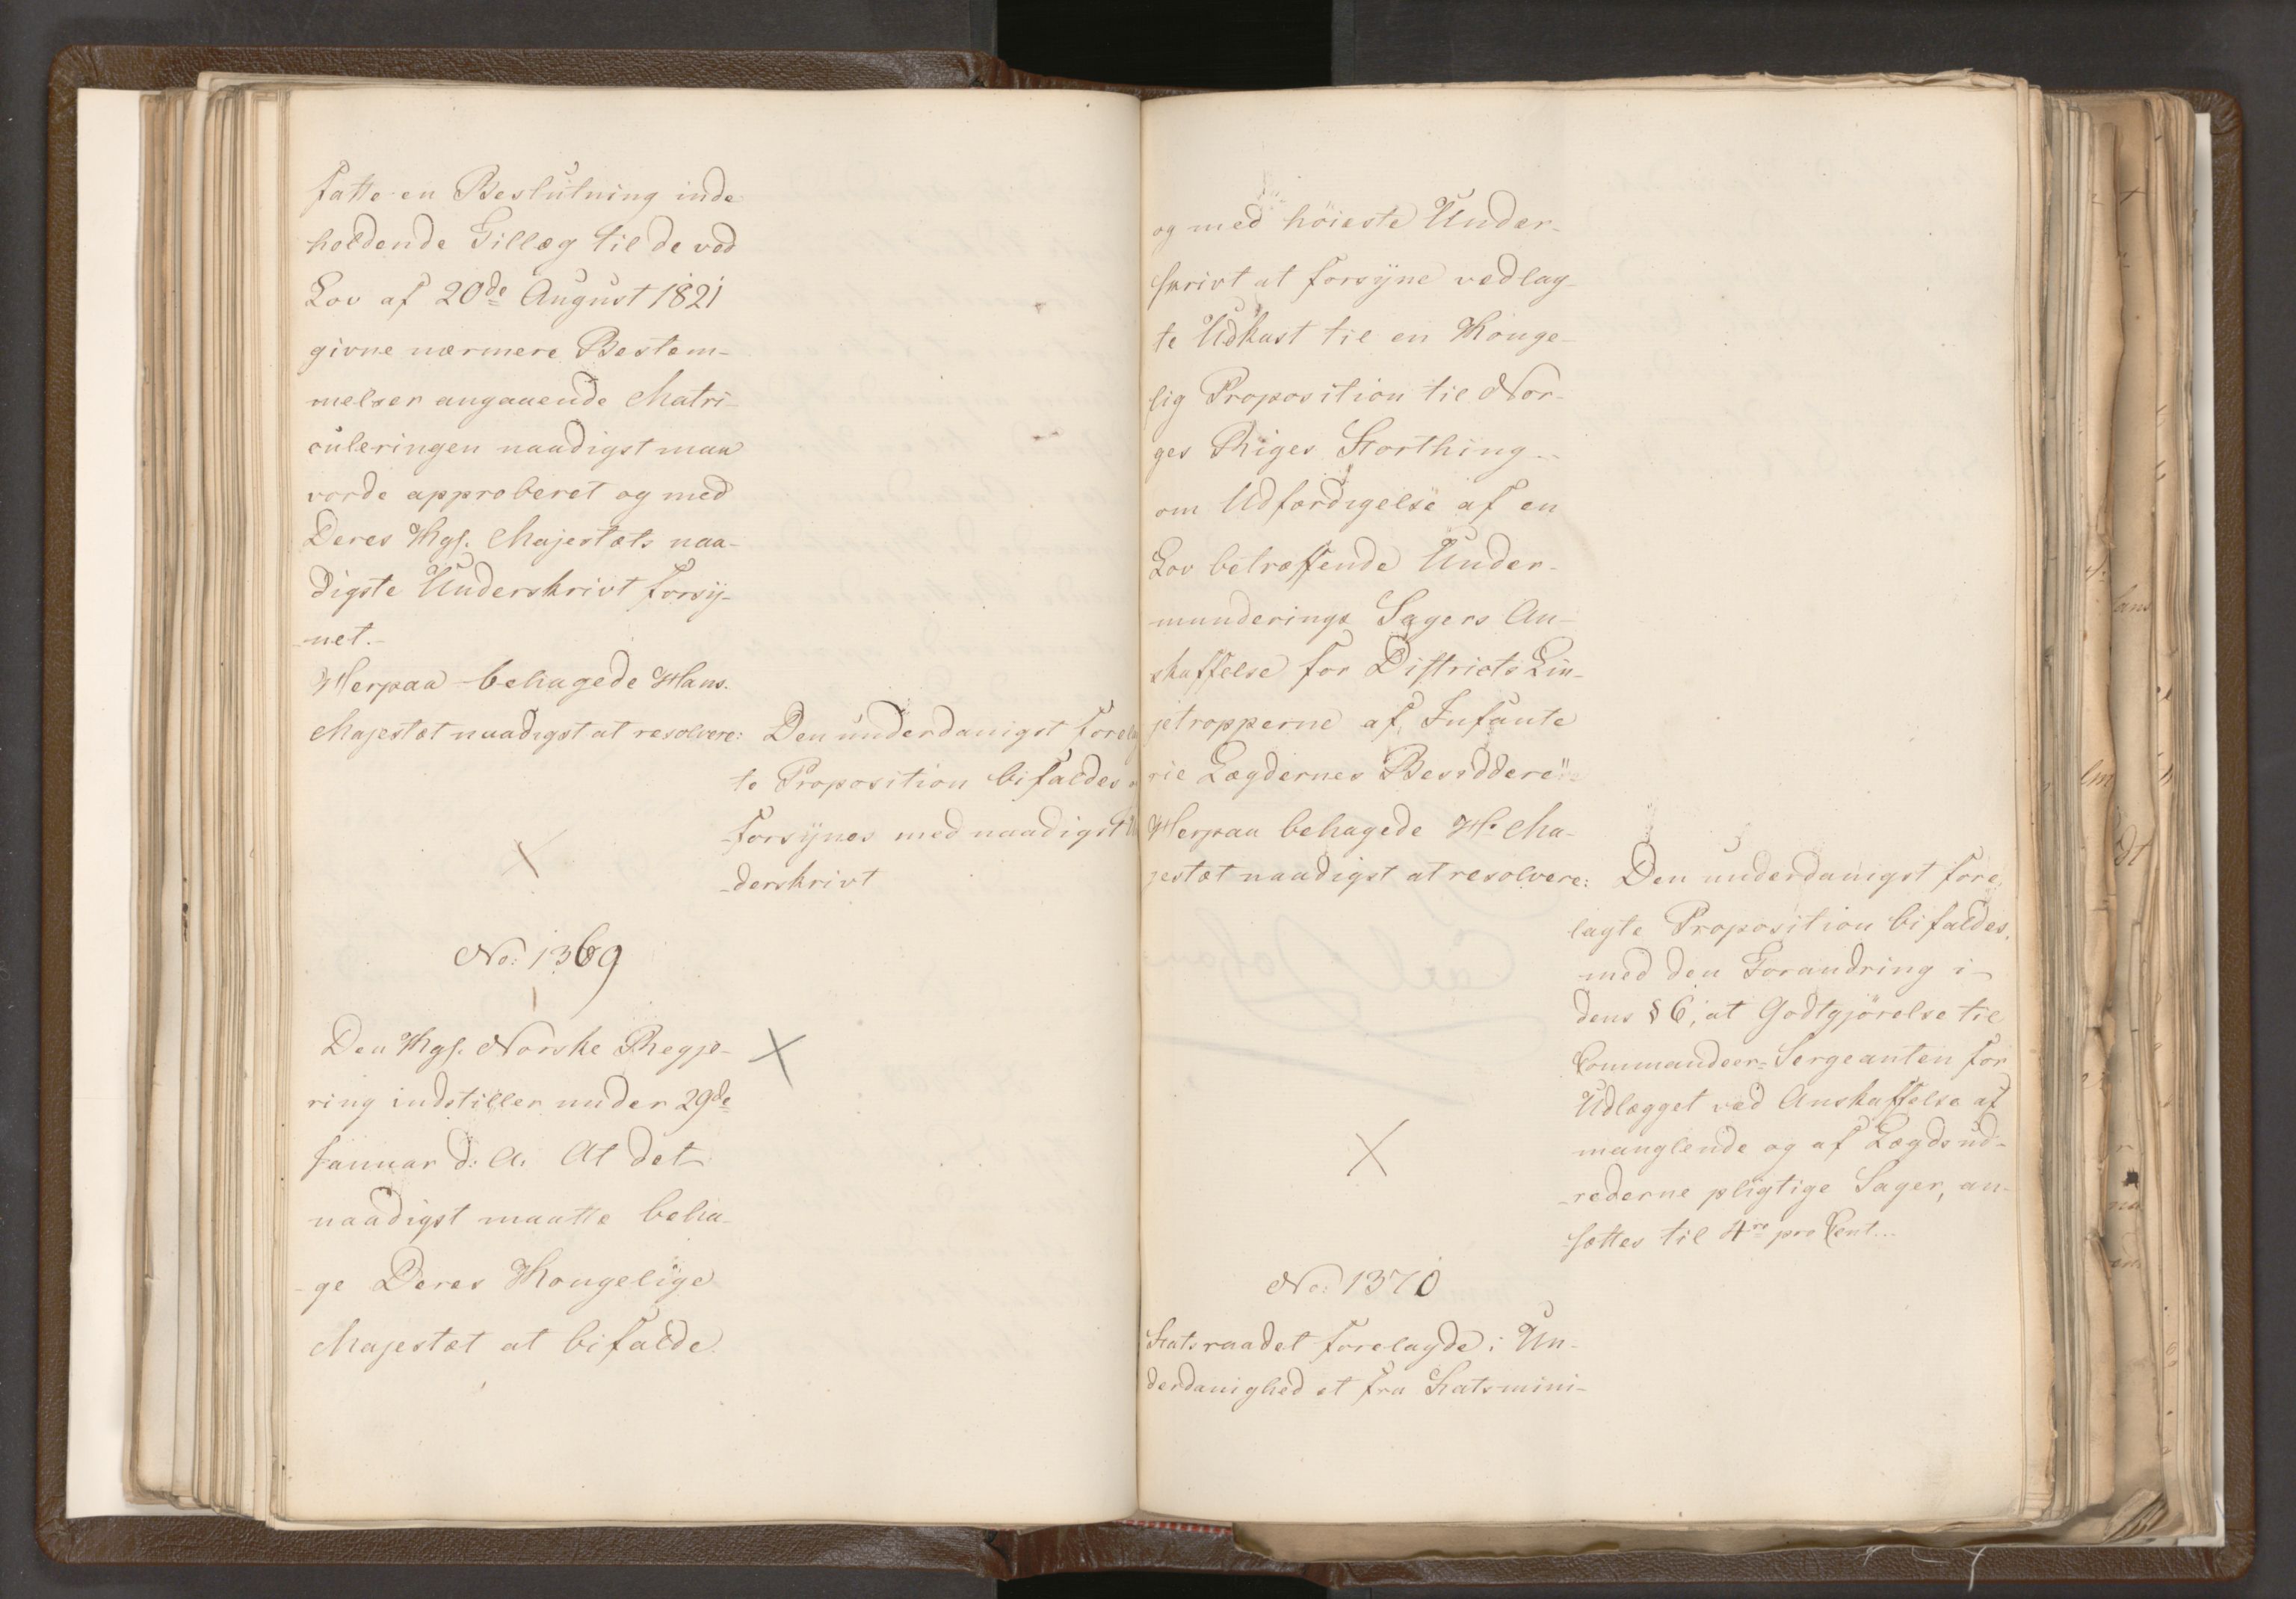 fatte en Beslutning inde
holdende Tillæg til de ved
Lov af 20de August 1821
givne nærmere Bestem-
melser angaaende Matri-
culeringen naadigst maa
vorde approberet og med
Deres Kgs. Majestæts naa-
digste Underskrivt forsy-
net.-
Herpaa behagede Hans
Majestæt naadigst at resolvere: Den underdanigst forelag
te Proposition bifaldes
forsynes med naadigst
-derskrivt
No: 1369
Den Kgs. Norske Regje-
ring indstiller under 29de
Januar d: A: At det
naadigst maatte beha-
-ge Deres Kongelige
Majestæt at bifalde
og med höieste Under-
skrivt at forsyne vedlag-
te Udkast til en Konge-
lig Proposition til Nor-
ges Riges Storthing
om Udfærdigelse af en
Lov betræffende Under-
munderings Sagers An-
skaffelse for Districts Lin-
jetropperne af Infante
rie Lægdernes Besiddere
Herpaa behagede H. Ma-
jestæt naadigst at resolvere: Den underdanigst fore
lagte Proposition bifaldes,
med den Forandring i
dens § 6, at Godtgjörelse til
Commandeer-Sergeanten for
Udlægget ved Anskaffelse af
manglende og af Lægdsud-
-rederne pligtige Sager, an-
sættes til 4re pro Cent...
No: 1370
Statsraadet forelagde i Un-
derdanighed et fra Statsmini-